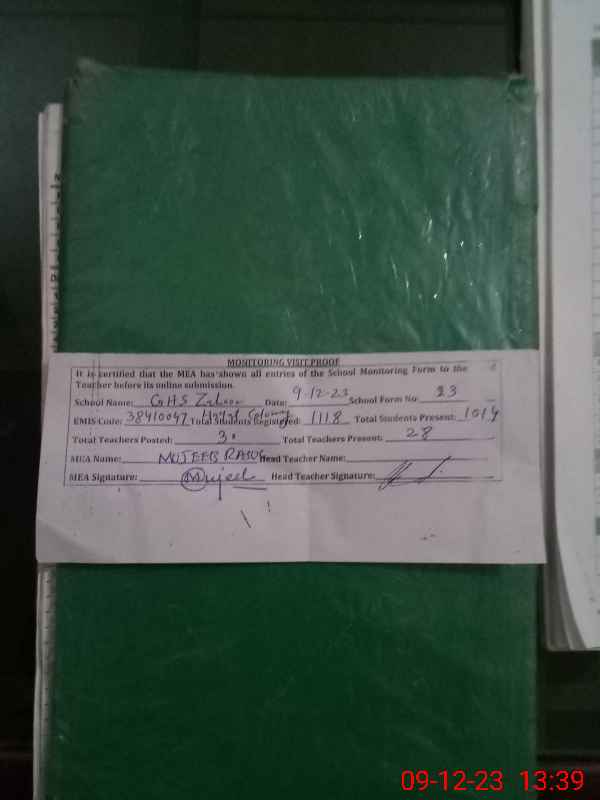 MONITORING VISIT PROOF
It is certified that the MEA has shown all entries of the School Monitoring Form to the
Teacher before its online submission.
School Name: GHS Date: 9-12-23 School Form No 23
EMIS Code: 38410047 Total Students Registered: 1118 Total Students Present: 1014
Total Teachers Posted: Total Teachers Present: 28
MEA Name: MUJEEB Head Teacher Name:
MEA Signature: Mujeeb Head Teacher Signature:
09-12-23 13:39